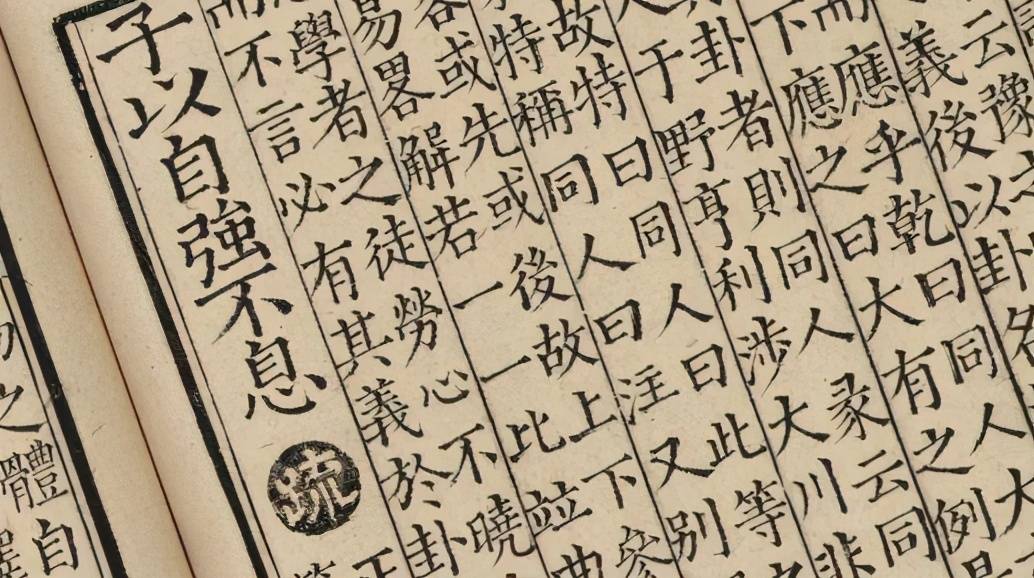 云豫
義後以卦名
而應乎乾曰同人大
下應之曰大有之例
卦者則同人彖云同
于野亨利涉大川非
故特曰同人曰此等
特稱同人曰注又別
各或先或後故上下參
易畧解若一一比並曲
學者之徒勞心不曉
而不言必有其義於卦
子以自強不息疏
體自
之